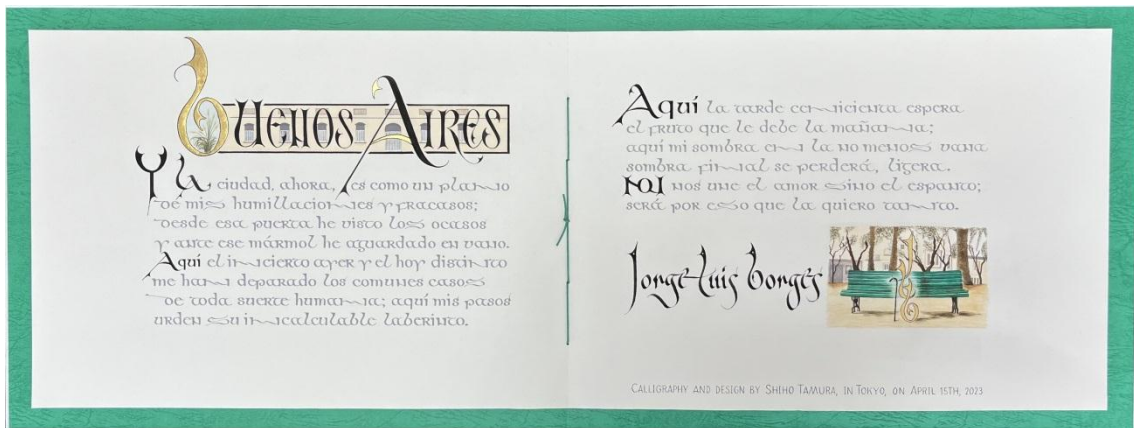 Buenos Aires
Y la ciudad, ahora, es como un plano
de mis humillaciones y fracasos;
desde esa puerta he visto los ocasos
y ante ese mármol he aguardado en vano.
Aquí el incierto ayer y el hoy distinto
me han deparado los comunes casos
de toda suerte humana; aquí mis pasos
urden su incalculable laberinto.
Aquí la tarde cenicienta espera
el fruto que le debe la mañana;
aquí mi sombra en la no menos vana
sombra final se perderá, ligera.
No nos une el amor sino el espanto;
será por eso que la quiero tanto.
Jorge Luis Borges
CALLIGRAPHY AND DESIGN BY SHIHO TAMURA, IN TOKYO, ON APRIL 15TH, 2023